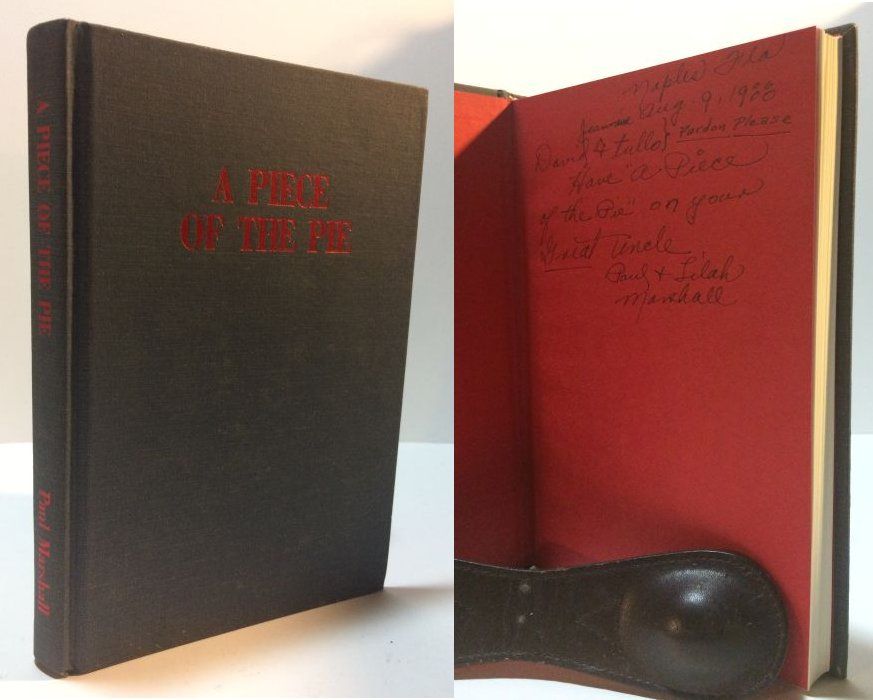 A PIECE OF THE PIE
Paul Marshall
A PIECE
OF THE PIE
Naples Fla
Aug. 9, 1988
David & Pardon Please
Have "a Piece
of the Pie" on your
Great Uncle
Paul & Lilah
Marshall